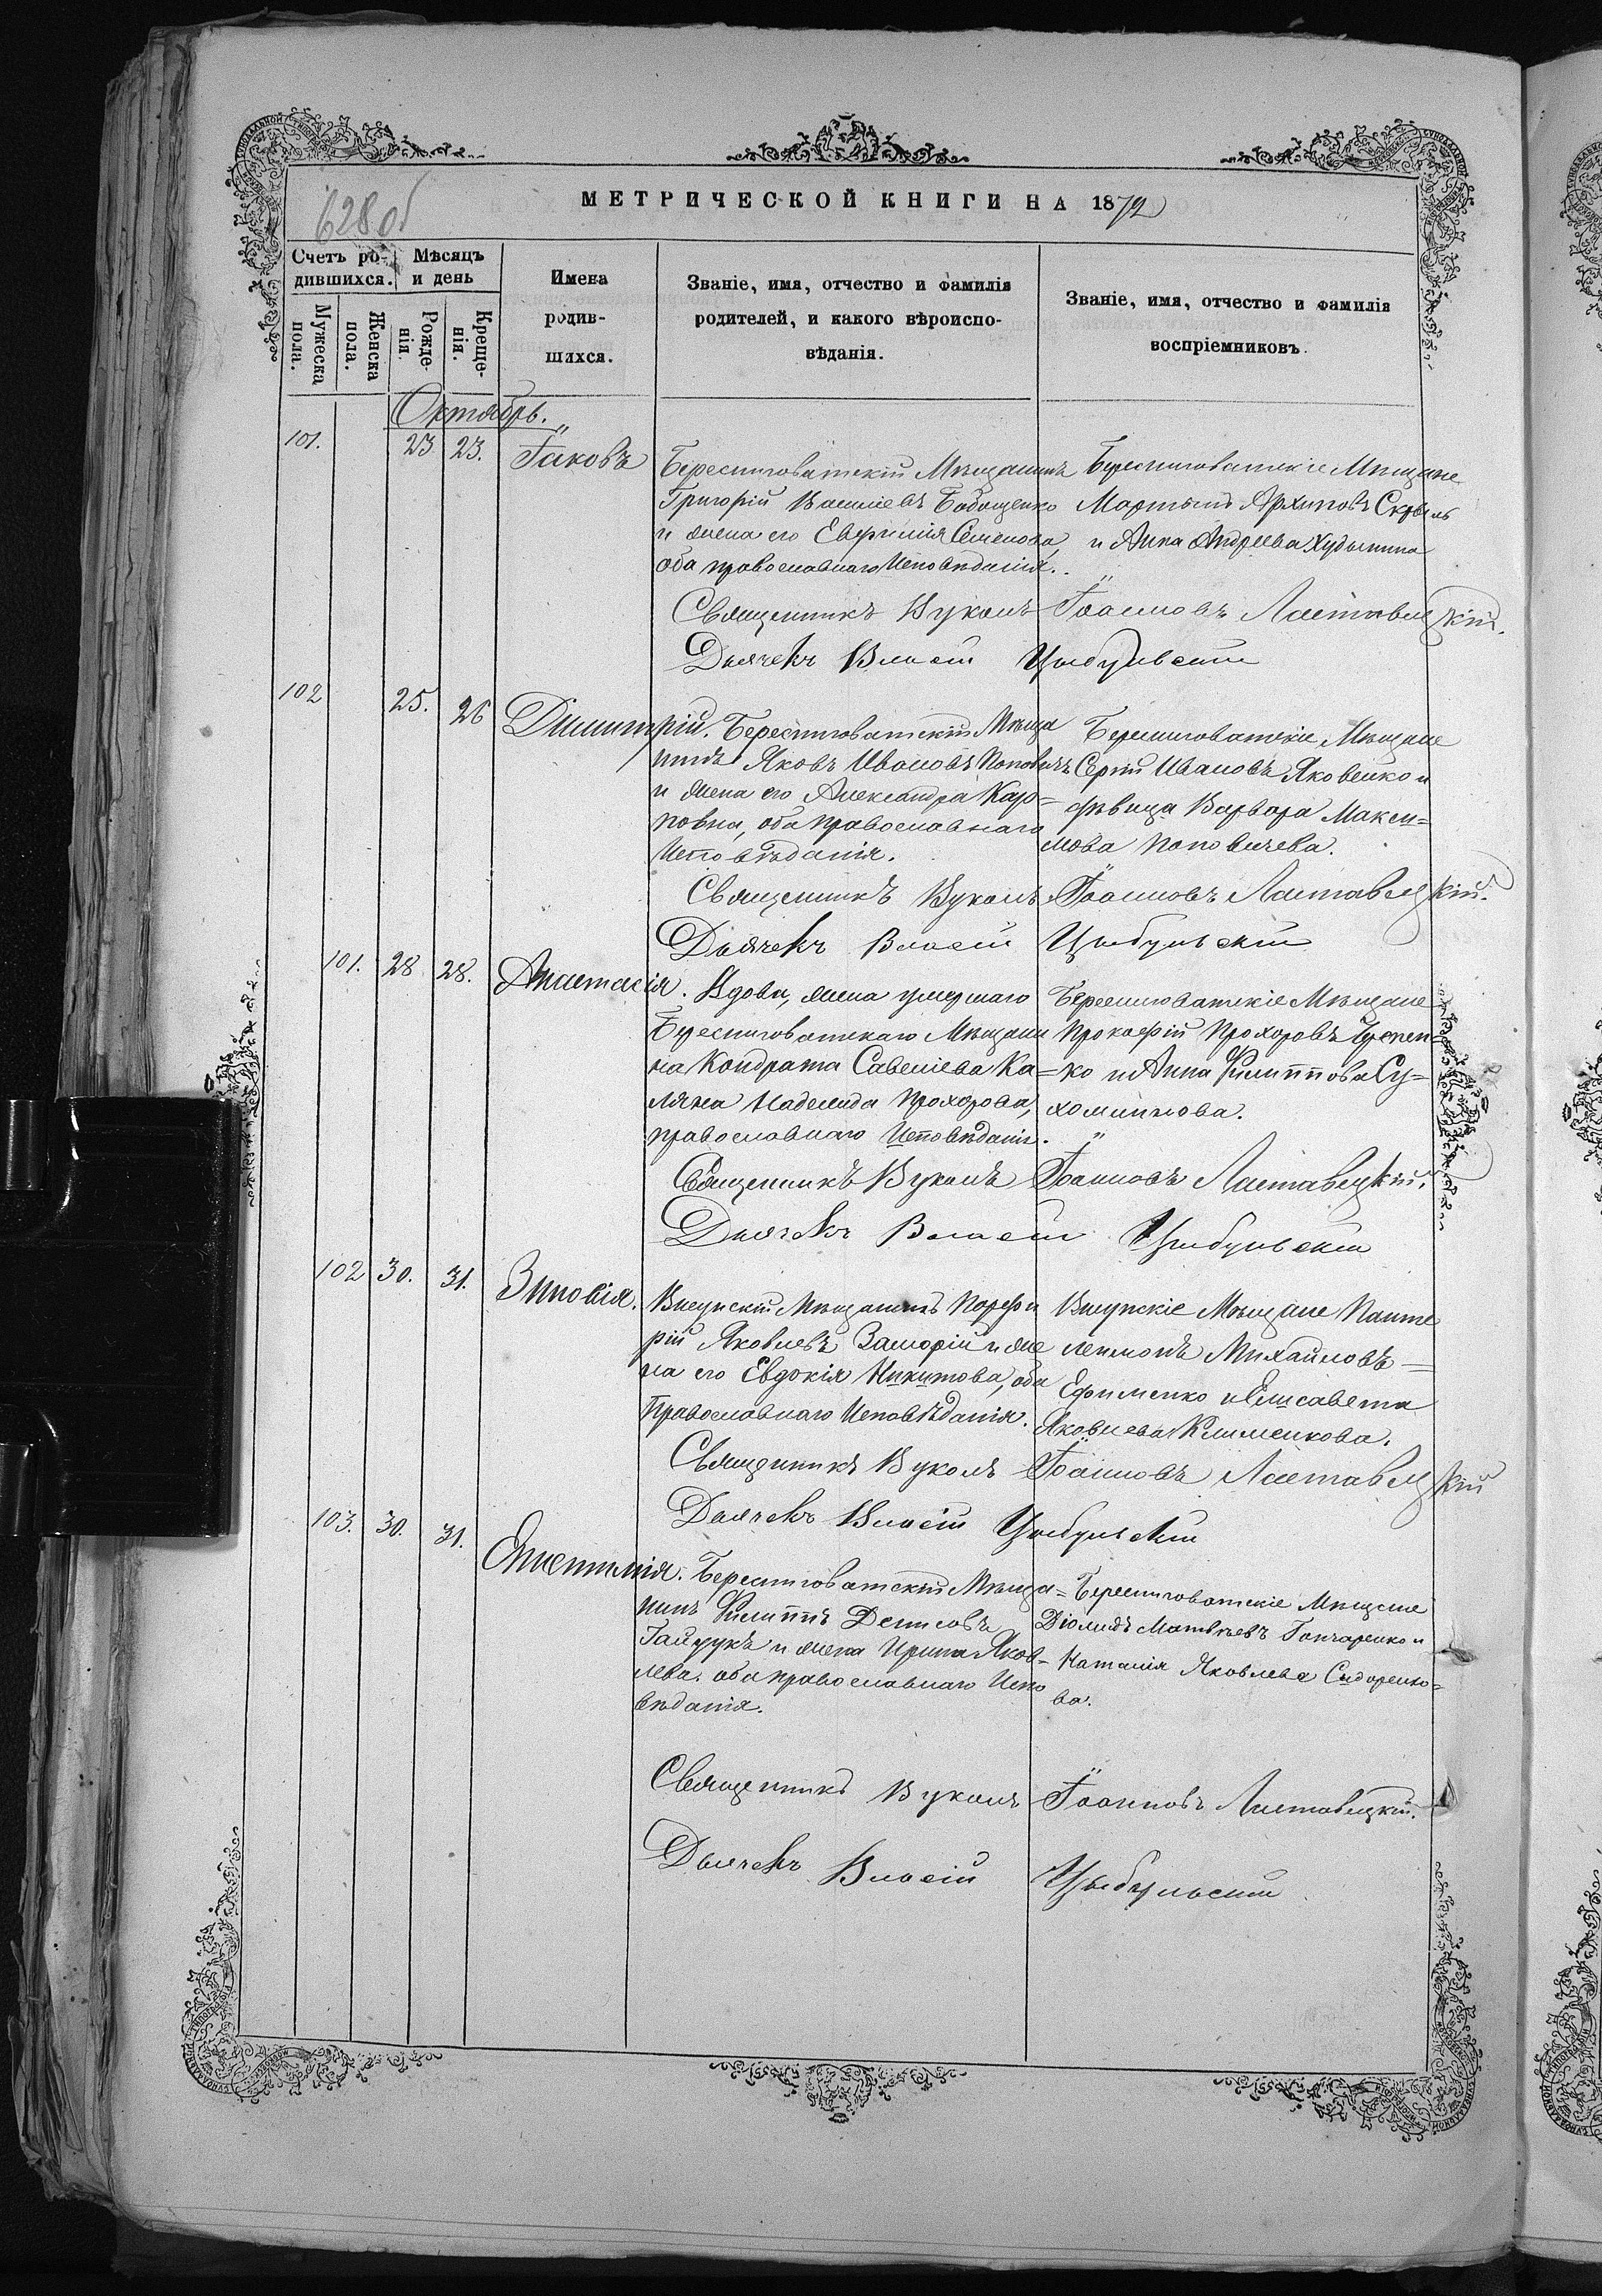 628об
МЕТРИЧЕСКОЙ КНИГИ НА 1872
Счетъ ро-
дившихся.
Мѣсяцъ
и день
Мужеска пола.
Женска пола.
Рожде-
нія.
Креще-
нія.
Имена
родив-
шихся.
Званіе, имя, отчество и фамилія
родителей, и какого вѣроиспо-
вѣданія.
Званіе, имя, отчество и фамилія
воспріемниковъ.
Октябрь.
101. 23 23. Іаковъ
Берестноватскій Мѣщанинъ
Григорій Васильевъ
и жена его Евфимія Семенова,
оба православнаго Исповѣданія.
Берестноватскіе Мѣщане
Мартынъ Архиповъ
и Анна Андреева
Священникъ Вуколъ Іоанновъ Листавецкій.
Дьячекъ Власій Цыбульскій
102 25. 26 Димитрій.
Берестноватскій Мѣща
нинъ Яковъ Ивановъ Поповичъ
и жена его Александра Кар=
повна, оба православнаго
Исповѣданія.
Берестноватскіе Мѣщане
Сергій Ивановъ Яковенко и
дѣвица Варвара Макси=
мова Поповичева.
Священникъ Вуколъ Іоанновъ Листавецкій.
Дьячекъ Власій Цыбульскій
101. 28 28. Анастасія.
Вдова, жена умершаго
Берестноватскаго Мѣщани
на Кондрата Савеліева Ка=
ляна Надежда Прохорова,
православнаго Исповѣданія.
Берестноватскіе Мѣщане
Прокофій Прохоровъ
ко и Анна Филиппова Су=
хоминова.
Священникъ Вуколъ Іоанновъ Листавецкій.
Дьячекъ Власій Цыбульскій
102 30. 31. Зиновія.
Висунскій Мѣщанинъ Порфи
рій Яковлевъ и же
на его Евдокія Никитова, оба
Православнаго Исповѣданія.
Висунскіе Мѣщане Панте
леимонъ Михайловъ=
Ефименко и Елисавета
Яковлева Клименкова.
Священникъ Вуколъ Іоанновъ Листавецкій
Дьячекъ Власій Цыбульскій
103. 30. 31. Епистимія.
Берестноватскій Мѣща=
нинъ Филиппъ Денисовъ
Гайдукъ и жена Ирина Яков=
лева. оба православнаго Испо
вѣданія.
Берестноватскіе Мѣщане
Діомидъ Матвѣевъ Гончаренко и
Наталія Яковлева Сидоренко=
ва.
Священникъ Вуколъ Іоанновъ Листавецкій.
Дьячекъ Власій Цыбульскій